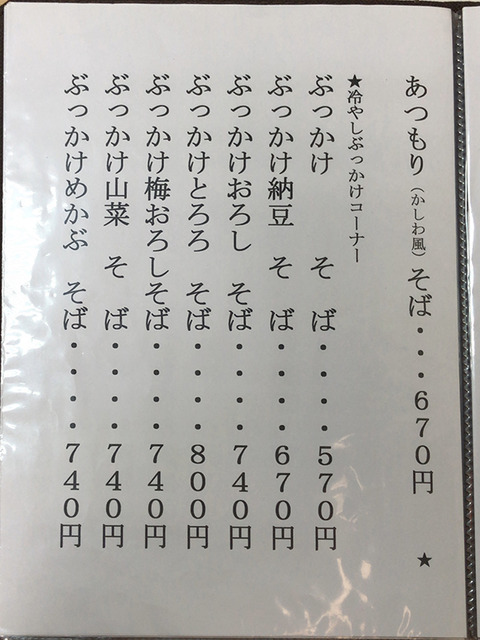 あつもり（かしわ風）そば・・・６７０円　★
★冷やしぶっかけコーナー
ぶっかけ　　　そ　ば・・・・５７０円
ぶっかけ納豆　そ　ば・・・・６７０円
ぶっかけおろし　そば・・・・７４０円
ぶっかけとろろ　そば・・・・８００円
ぶっかけ梅おろしそば・・・・７４０円
ぶっかけ山菜　そ　ば・・・・７４０円
ぶっかけめかぶ　そば・・・・７４０円